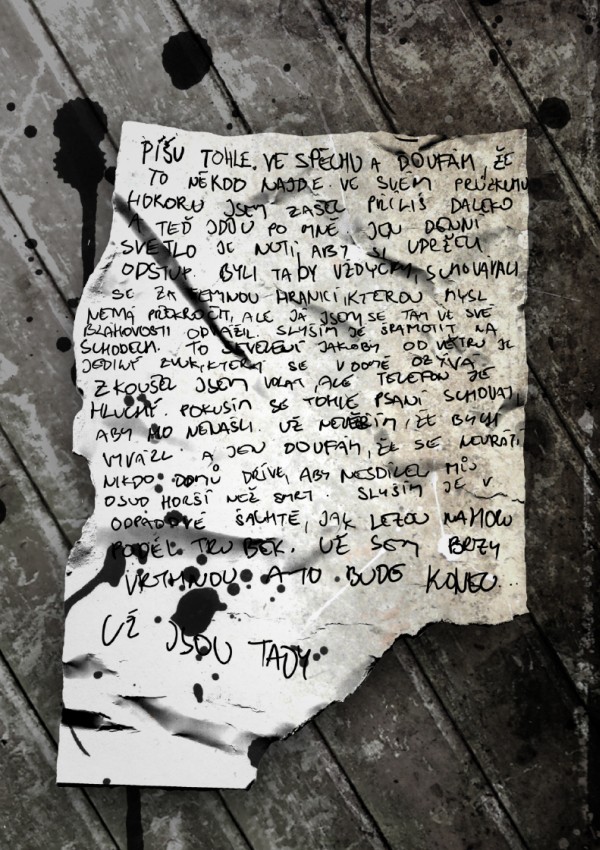 PÍŠU TOHLE VE SPĚCHU A DOUFÁM, ŽE
TO NĚKDO NAJDE. VE SVÉM PRŮZKUMU
HOKORU JSEM ZAŠEL PŘÍLIŠ DALEKO
A TEĎ JDOU PO MNĚ. JEN DENNÍ
SVĚTLO JE NUTÍ, ABY SI UDRŽELI
ODSTUP. BYLI TADY VŽDYCKY, SCHOVÁVALI
SE ZA TEMNOU HRANICÍ KTEROU MYSL
NEMÁ PŘEKROČIT, ALE JÁ JSEM SE TAM VE SVÉ
BLÁHOVOSTI ODVÁŽIL. SLYŠÍM JE ŠRAMOTIT NA
SCHODECH. TO SKVELENÍ JAKOBY OD VĚTRU JE
JEDINÝ ZVUK, KTERÝ SE V DOMĚ OZÝVÁ.
ZKOUŠEL JSEM VOLAT, ALE TELEFON JE
HLUCHÝ. POKUSÍM SE TOHLE PSANÍ SCHOVAT,
ABY HO NENAŠLI. UŽ NEVĚŘÍM, ŽE BYCH
VYVÁZL. A JEN DOUFÁM, ŽE SE NEVRÁTÍ
NIKDO DOMŮ DŘÍVE, ABY NESDÍLEL MŮJ
OSUD HORŠÍ NEŽ SMRT. SLYŠÍM JE V
ODPADOVÉ ŠACHTĚ, JAK LEZOU NAHORU
PODÉL TRUBEK. UŽ SEM BRZY
VRTHNOU A TO BUDE KONEC...
UŽ JSOU TADY